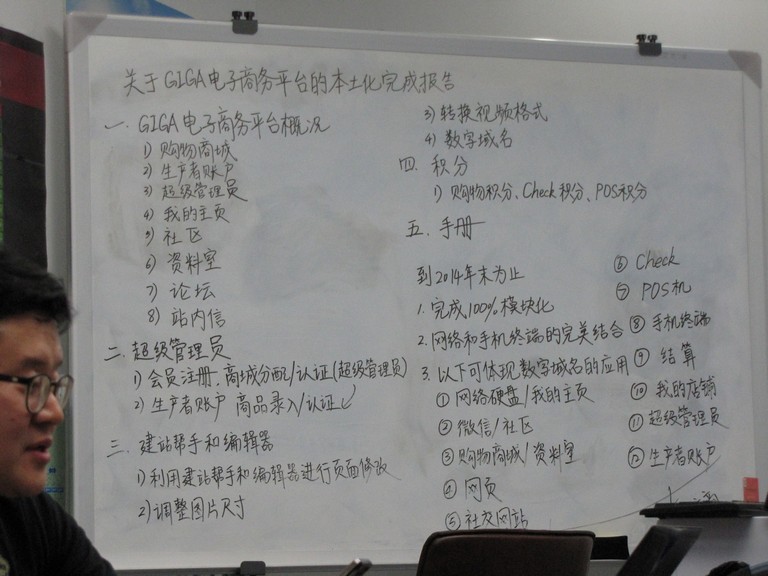 关于GIGA电子商务平台的本土化完成报告
一. GIGA电子商务平台概况
1) 购物商城
2) 生产者账户
3) 超级管理员
4) 我的主页
5) 社区
6) 资料室
7) 论坛
8) 站内信
二. 超级管理员
1) 会员注册、商城分配/认证(超级管理员)
2) 生产者账户 商品录入/认证
三. 建站帮手和编辑器
1) 利用建站帮手和编辑器进行页面修改
2) 调整图片尺寸
3) 转换视频格式
4) 数字域名
四. 积分
1) 购物积分、Check积分、POS积分
五. 手册
到2014年末为止
1. 完成100%模块化
2. 网络和手机终端的完美结合
3. 以下可体现数字域名的应用
① 网络硬盘/我的主页
② 微信/社区
③ 购物商城/资料室
④ 网页
⑤ 社交网站
⑥ Check
⑦ POS机
⑧ 手机终端
⑨ 结算
⑩ 我的店铺
⑪ 超级管理员
⑫ 生产者账户